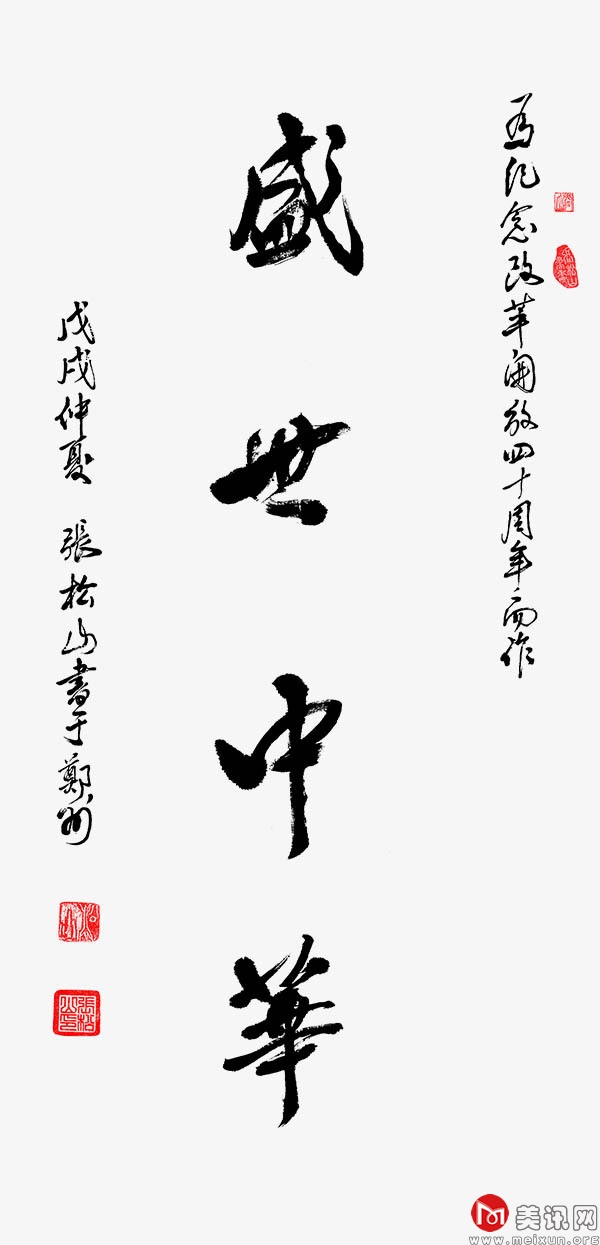 为纪念改革开放四十周年而作
盛世中華
戊戌仲夏 張松山書于鄭州
張松山印
美讯网
www.meixun.org